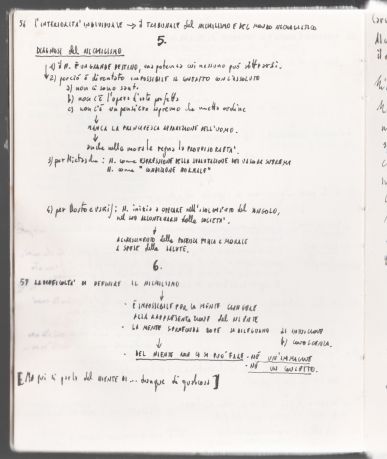 56 L'INTERIORITÀ INDIVIDUALE → il TRIBUNALE del NICHILISMO E DEL MONDO NICHILISTICO
5.
DIAGNOSI del NICHILISMO
1) il N. È UN GRANDE DESTINO, una potenza cui nessuno può sottrarsi.
2) perciò è diventato IMPOSSIBILE IL CONTATTO CON L'ASSOLUTO
a) non ci sono santi
b) non c'è l'opera d'arte perfetta
c) non c'è un pensiero supremo che metta ordine
↓
MANCA LA PRINCIPESCA APPARIZIONE DELL'UOMO.
↓
anche nella morale regna la PROVVISORIETÀ.
3) per Nietzsche: N. come ESPRESSIONE DELLA SVALUTAZIONE DEI VALORI SUPREMI
N. come "CONDIZIONE NORMALE"
4) per Dostoevskij: N. inizia a OPERARE nell'ISOLAMENTO del SINGOLO,
nel suo ALLONTANARSI dalla SOCIETÀ.
↓
ACCRESCIMENTO della POTENZA FISICA E MORALE
A SPESE della SALUTE.
6.
57 LA DIFFICOLTÀ DI DEFINIRE IL NICHILISMO
↓
• È IMPOSSIBILE PER LA MENTE GIUNGERE
ALLA RAPPRESENTAZIONE DEL NIENTE
• LA MENTE SPROFONDA DOVE SI DILEGUANO a) INTUIZIONE
b) CONOSCENZA.
↓
• DEL NIENTE NON CI SI PUÒ FARE • NÉ UN'IMMAGINE
• NÉ UN CONCETTO.
[Ma qui si parla del NIENTE DI... dunque di qualcosa]